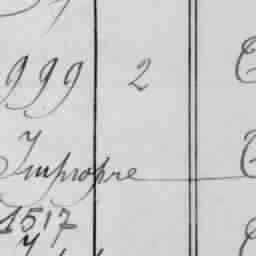 999 2
Impropre
1517